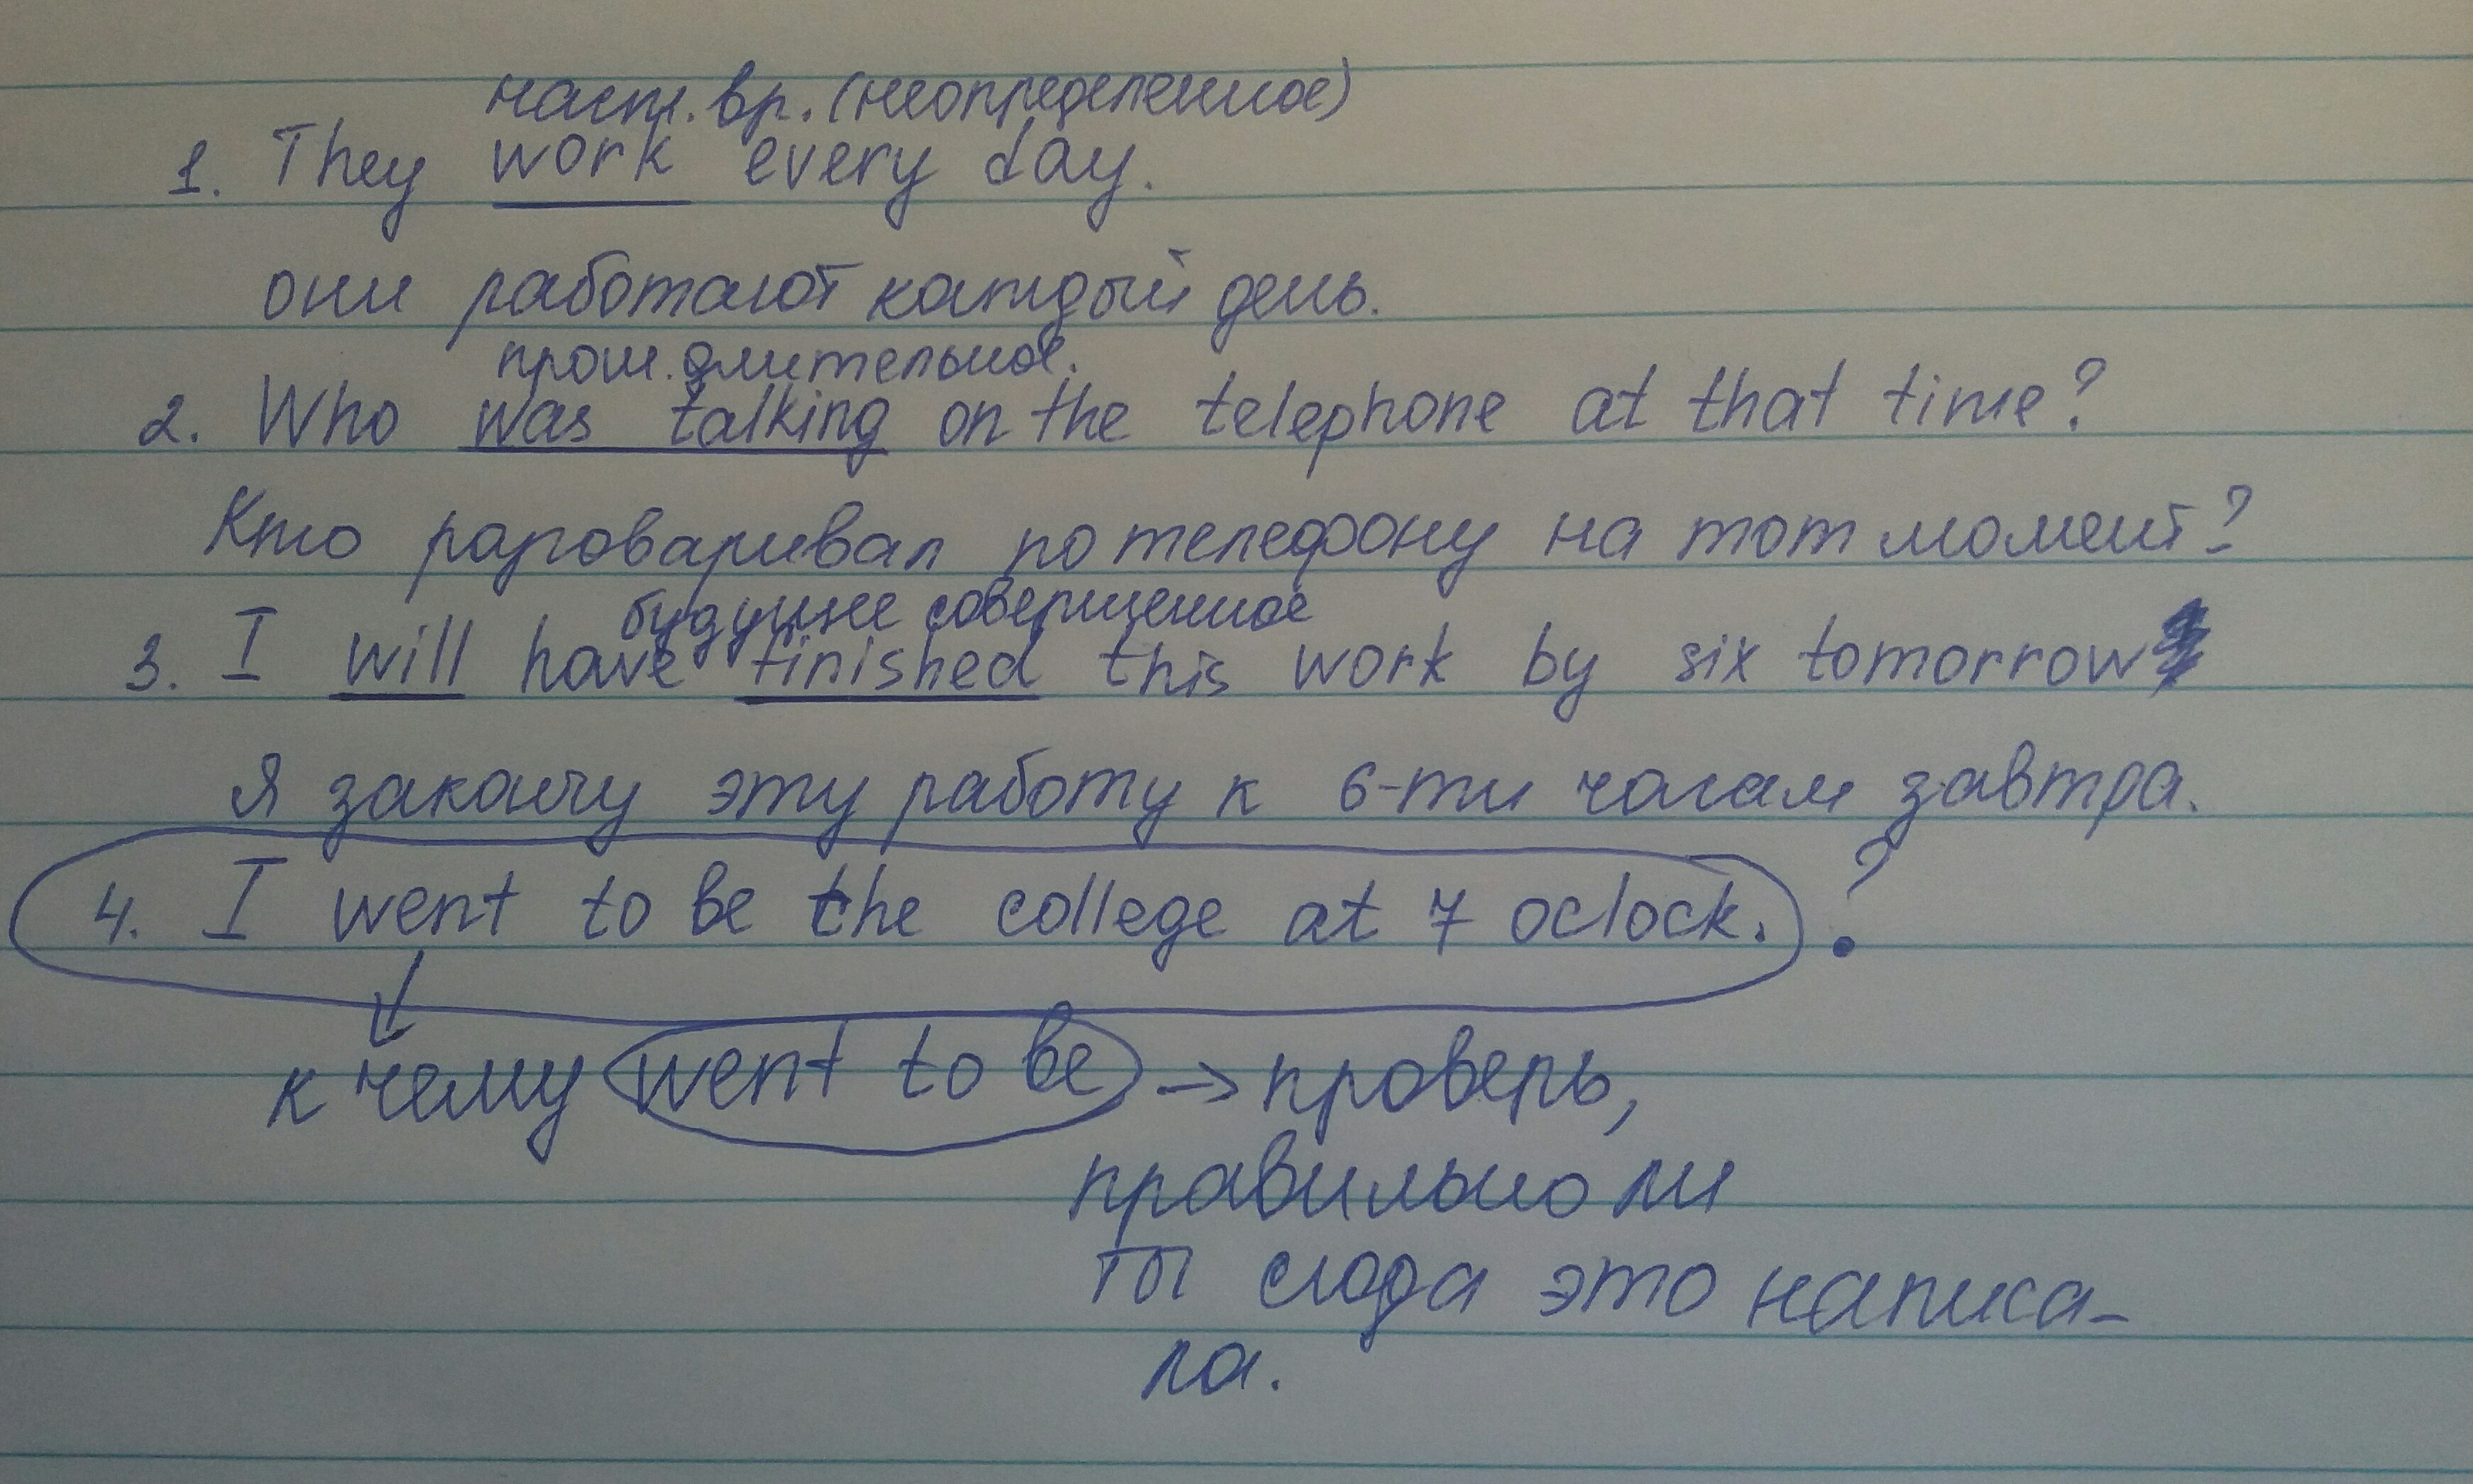 наст. вр. (неопределенное)
1. They work every day.
они работают каждый день.
прош. длительное.
2. Who was talking on the telephone at that time?
Кто разговаривал по телефону на тот момент?
будущее совершенное
3. I will have finished this work by six tomorrow
Я закончу эту работу к 6-ти часам завтра.
4. I went to be the college at 7 oclock. ?
к чему went to be → проверь,
правильно ли
ты сюда это написа-
ла.